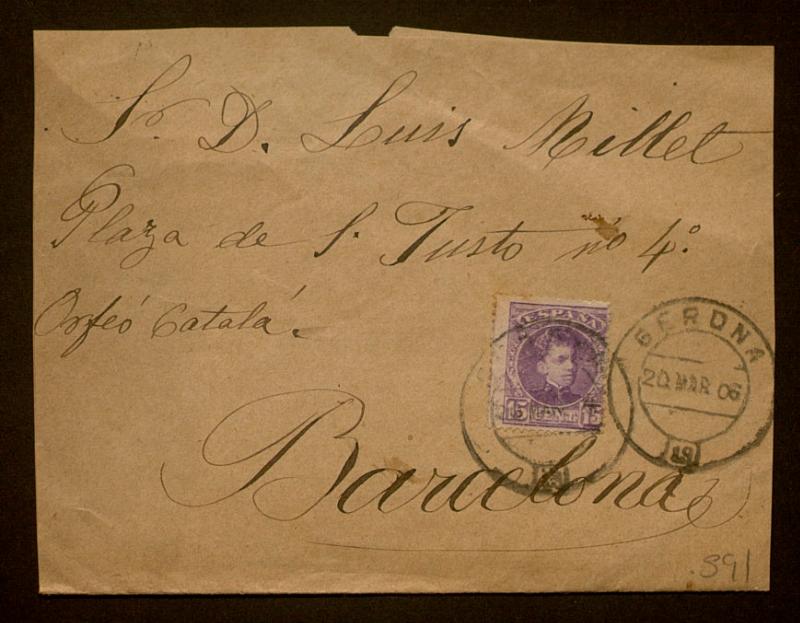 Sr. D. Luis Millet
Plaza de S. Justo nº 4º
Orfeó Catalá.
ESPAÑA
15 15
GERONA
20 MAR 06
19
Barcelona
391